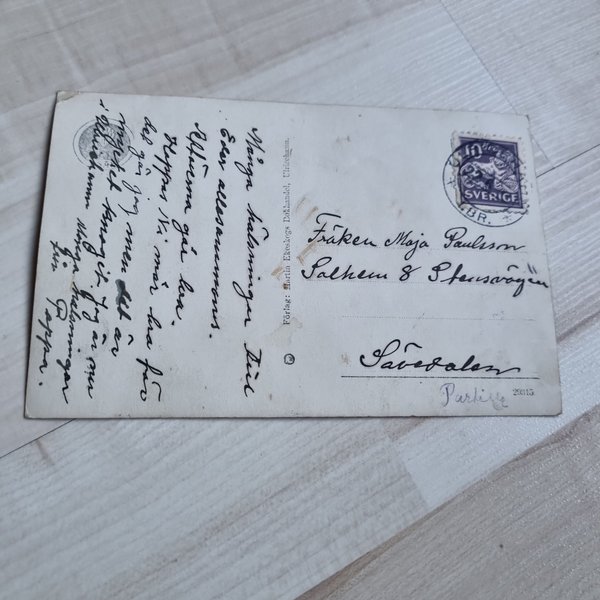 Många hälsningar till
Eder allesammans.
Affärerna går bra.
Hoppas Ni mår bra för
det gör jag men det är
mycket knogit. Jag är nu
i
Många hälsningar
Pappa.
Förlag: Martin Ekeskogs Bokhandel, Ulricehamn.
10
SVERIGE
BR.
Fröken Maja Paulsson
Solhem 8 Stensvägen
Sävedalen
Partille
29315